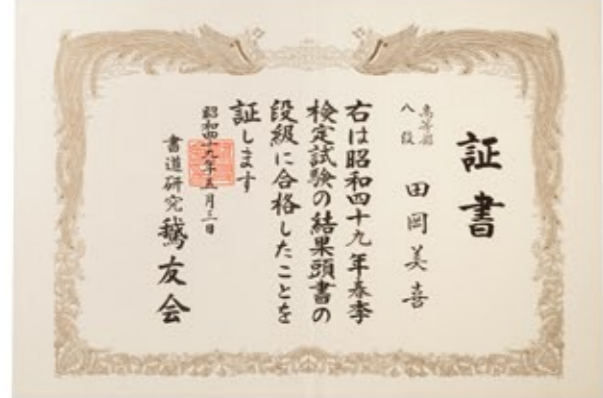 証書
高等部
八段
田岡美喜
右は昭和四十九年春季
検定試験の結果頭書の
段級に合格したことを
証します
昭和四十九年五月三日
書道研究 鵞友会